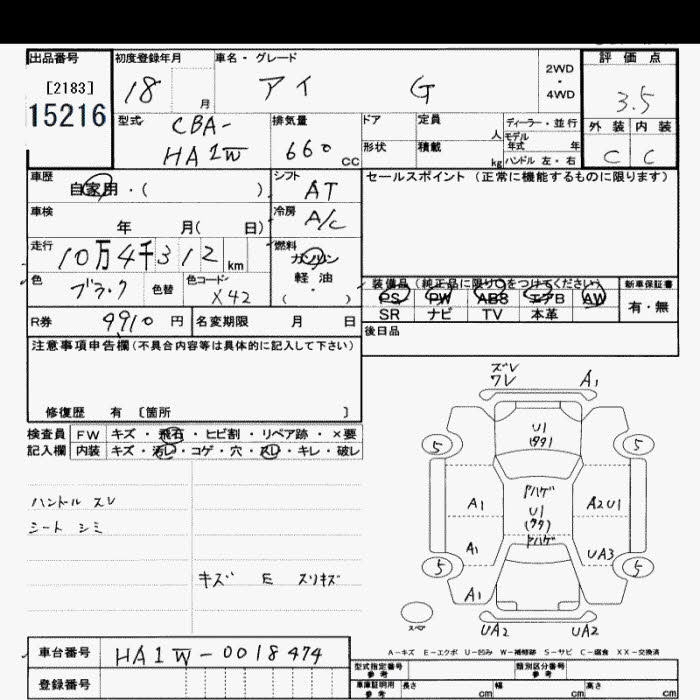 出品番号 初度登録年月 車名・グレード 2WD・4WD 評価点
[2183] 15216 18 月 アイ G 3.5
型式 CBA-HA1W 排気量 660 CC ドア 定員 人 ディーラー・並行 外装 内装
形状 積載 kg モデル年式 年 ハンドル 左・右 C C
車歴 自家用・( ) シフト AT セールスポイント (正常に機能するものに限ります)
車検 年 月( 日) 冷房 A/C
走行 10万4千312 km 燃料 ガソリン 軽油 ・ ( )
色 ブラック 色替 色コード X42
装備品(純正品に限り○をつけてください) 新車保証書
PS PW ABS エアB AW 有・無
SR ナビ TV 本革
R券 9910 円 名変期限 月 日 後日品
注意事項申告欄(不具合内容等は具体的に記入して下さい)
修復歴 有 〔箇所 〕
検査員記入欄 FW キズ・飛石・ヒビ割・リペア跡・×要
内装 キズ・汚レ・コゲ・穴・スレ・キレ・破レ
ハンドル スレ
シート シミ
キズ E スリキズ
ズレ
ワレ A1
U1
(タタ)
5 5
ヤハゲ
A1 U1 A2U1
(タタ)
ヤハゲ
A1 UA3
5 5
A1
スペア UA2 UA2
A-キズ E-エクボ U-凹み W-補修跡 S-サビ C-腐食 XX-交換済
車台番号 HA1W-0018474
型式指定番号 参考 類別区分番号 参考
登録番号 車庫証明用 参考 長さ cm 幅 cm 高さ cm